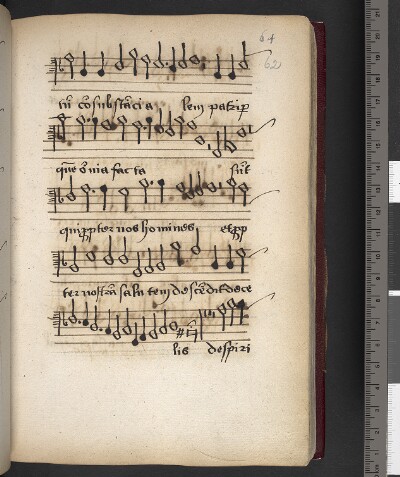 64
62
tū cōsubstācia lem patri p
quē oīa facta sūt
qui ppter nos homines et pp
ter nostrā salutem descēdit de ce
lis de spiri